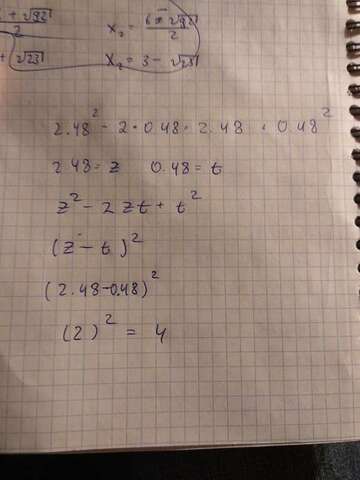 + √92 / 2    x₂ = 6 - √92 / 2
+ √23    x₂ = 3 - √23
2.48² - 2 · 0.48 · 2.48 + 0.48²
2.48 = z    0.48 = t
z² - 2zt + t²
(z - t)²
(2.48-0.48)²
(2)² = 4